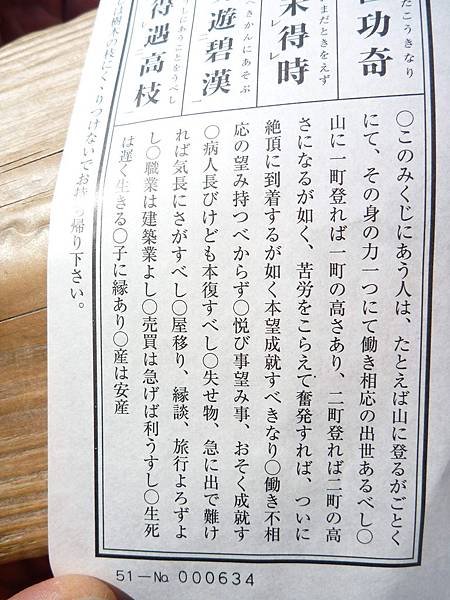 功奇
たこうきなり
未得レ時
まだときをえず
遊碧漢
へきかんにあそぶ
得遇高枝
にあうことをうべし
〇このみくじにあう人は、たとえば山に登るがごとく
にて、その身の力一つにて働き相応の出世あるべし〇
山に一町登れば一町の高さあり、二町登れば二町の高
さになるが如く、苦労をこらえて奮発すれば、ついに
絶頂に到着するが如く本望成就すべきなり〇働き不相
応の望み持つべからず〇悦び事望み事、おそく成就す
〇病人長びけども本復すべし〇失せ物、急に出で難け
れば気長にさがすべし〇屋移り、縁談、旅行よろずよ
し〇職業は建築業よし〇売買は急げば利うすし〇生死
は遅く生きる〇子に縁あり〇産は安産
樹木の枝にくくりつけないでお持ち帰り下さい。
51－№ 000634